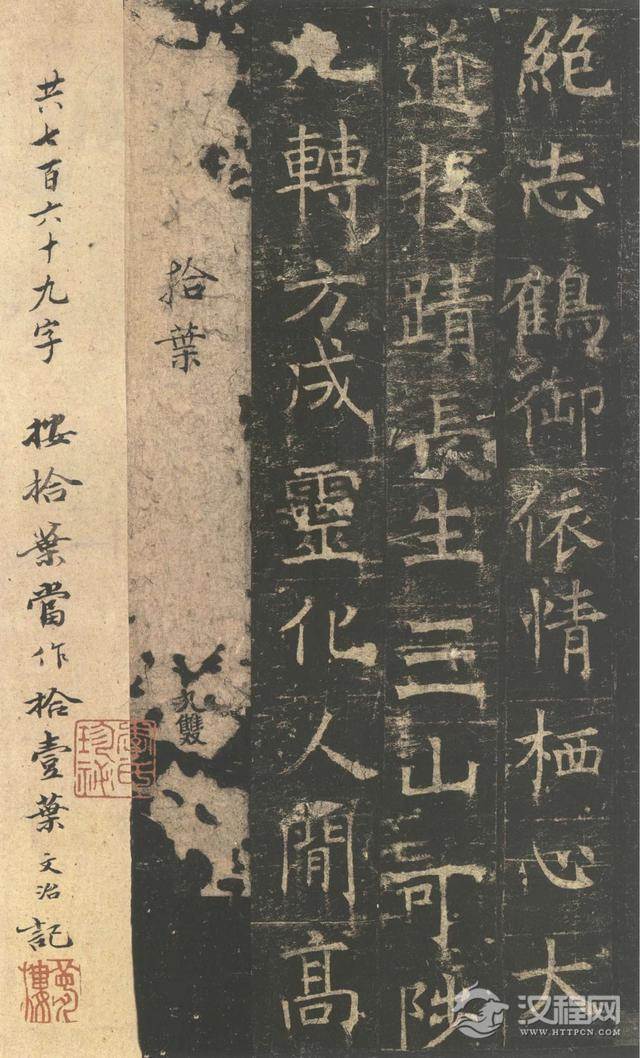 絶志鶴御依情栖心大
道投蹟長生三山可陟
九轉方成靈化人間高
拾葉
九雙
共七百六十九字 按拾葉當作拾壹葉 文治記
汉程网
WWW.HTTPCN.COM